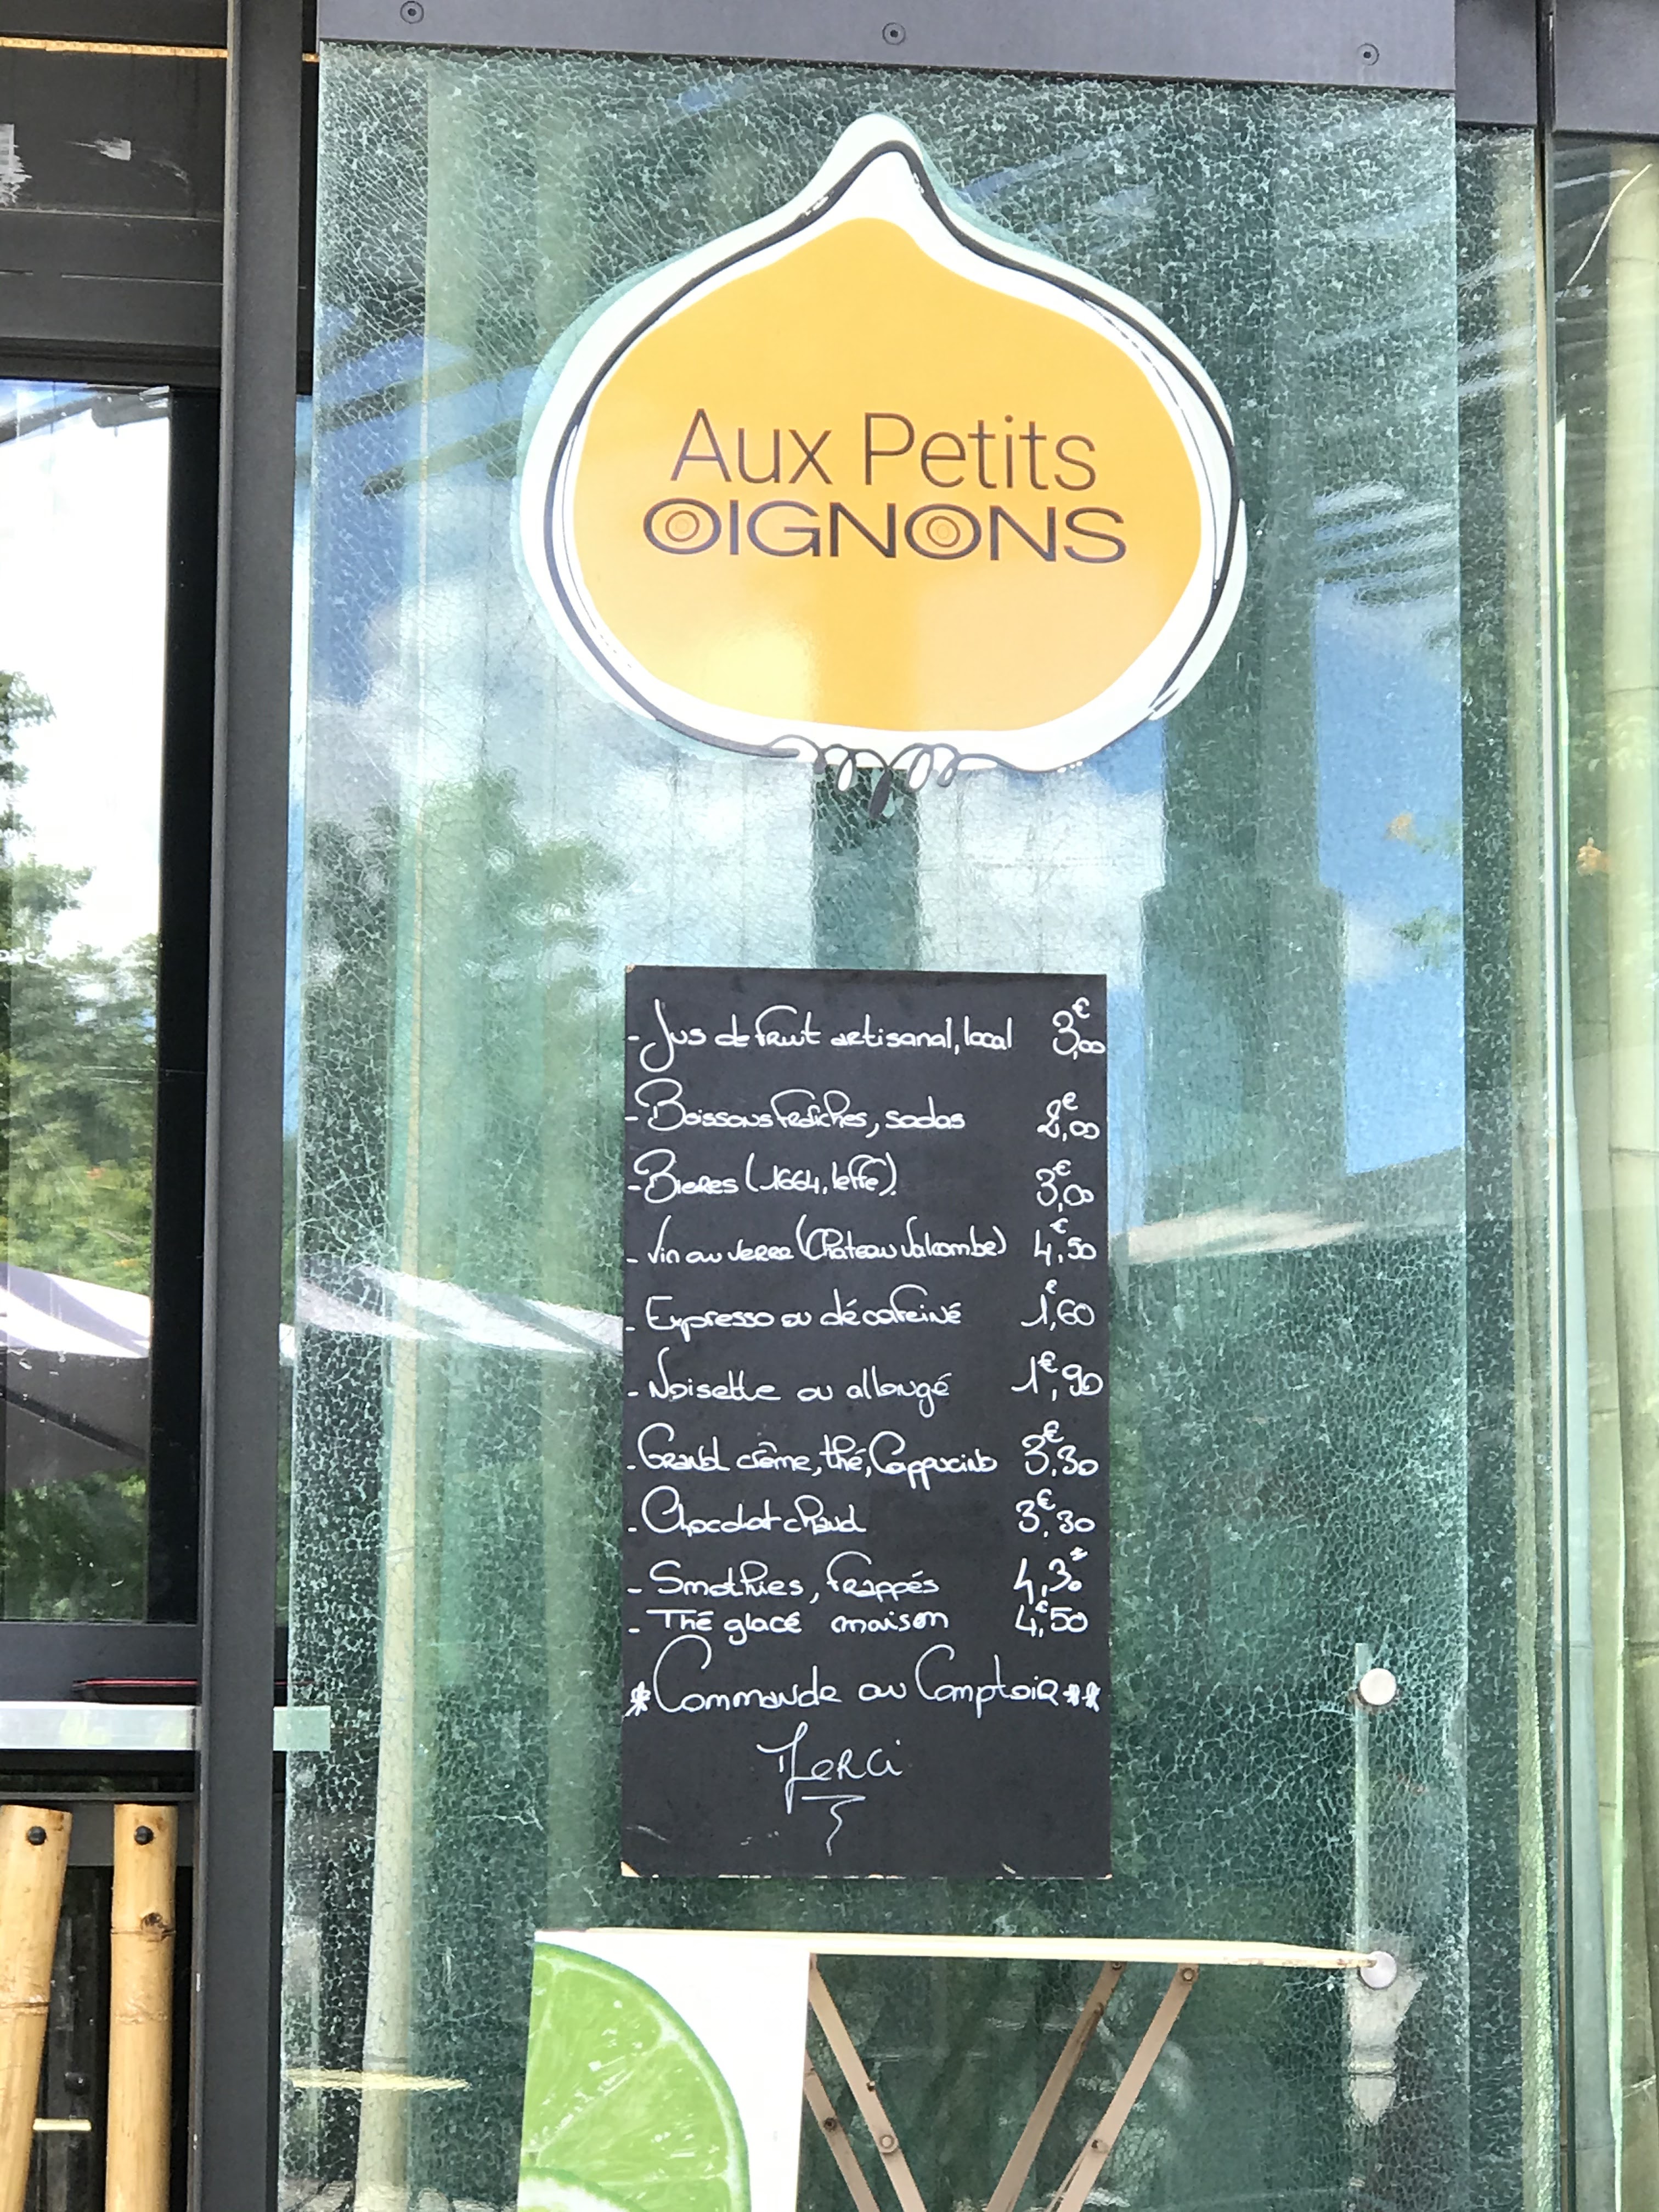 Aux Petits
OIGNONS
- Jus de fruit artisanal, local 3€,00
- Boissons fraîches, sodas 2€,00
- Bieres (1664, leffe). 3€,00
- Vin au verre (Chateau Valcombe) 4€,50
- Expresso ou décafeiné 1€,60
- Noisette ou allongé 1€,90
- Grand crème, thé, Cappucino 3€,30
- Chocolat chaud 3€,30
- Smothies, frappés 4,30
- Thé glacé maison 4€,50
*Commande au Comptoir**
Merci